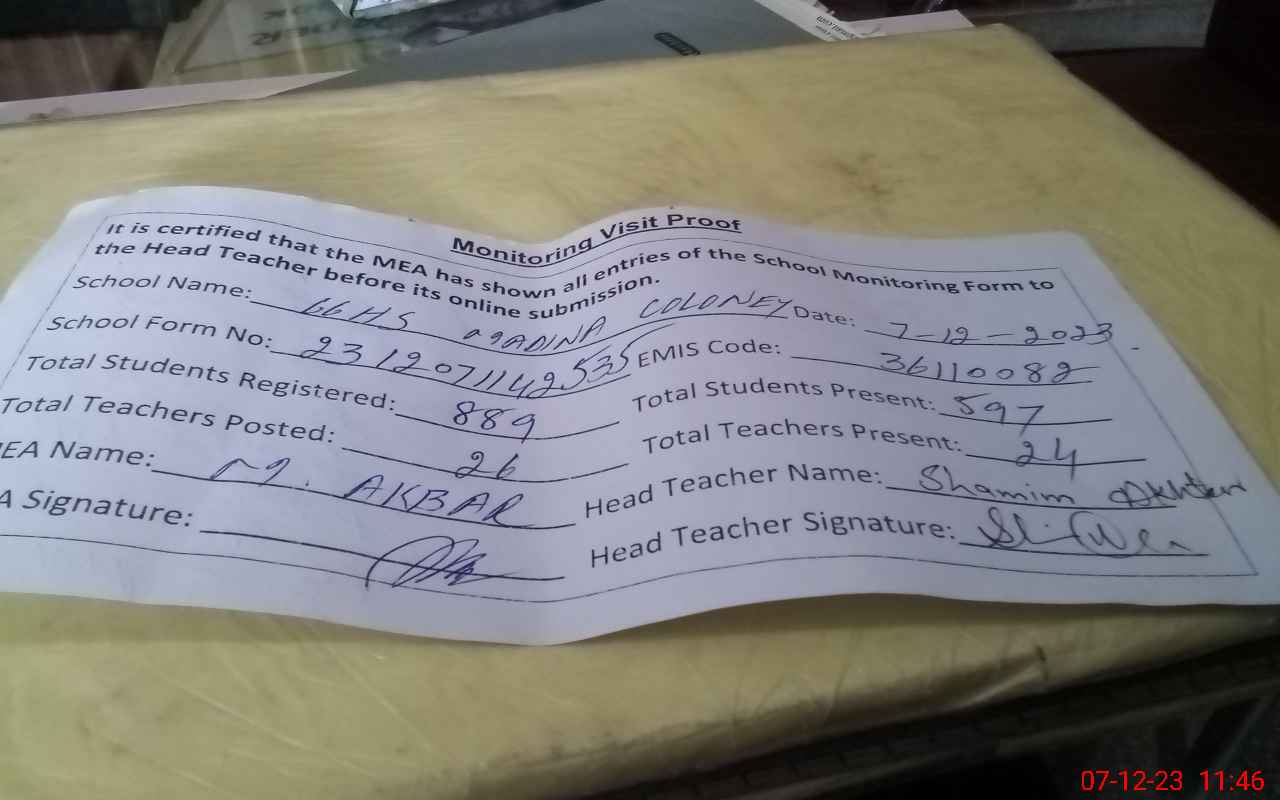 Monitoring Visit Proof
It is certified that the MEA has shown all entries of the School Monitoring Form to
the Head Teacher before its online submission.
School Name: GGHS MADINA COLONEY Date: 7-12-2023
School Form No: 2312071142535 EMIS Code: 36110082
Total Students Registered: 889 Total Students Present: 597
Total Teachers Posted: 26 Total Teachers Present: 24
EA Name: M. AKBAR Head Teacher Name: Shamim Akhtar
A Signature: Head Teacher Signature:
07-12-23 11:46